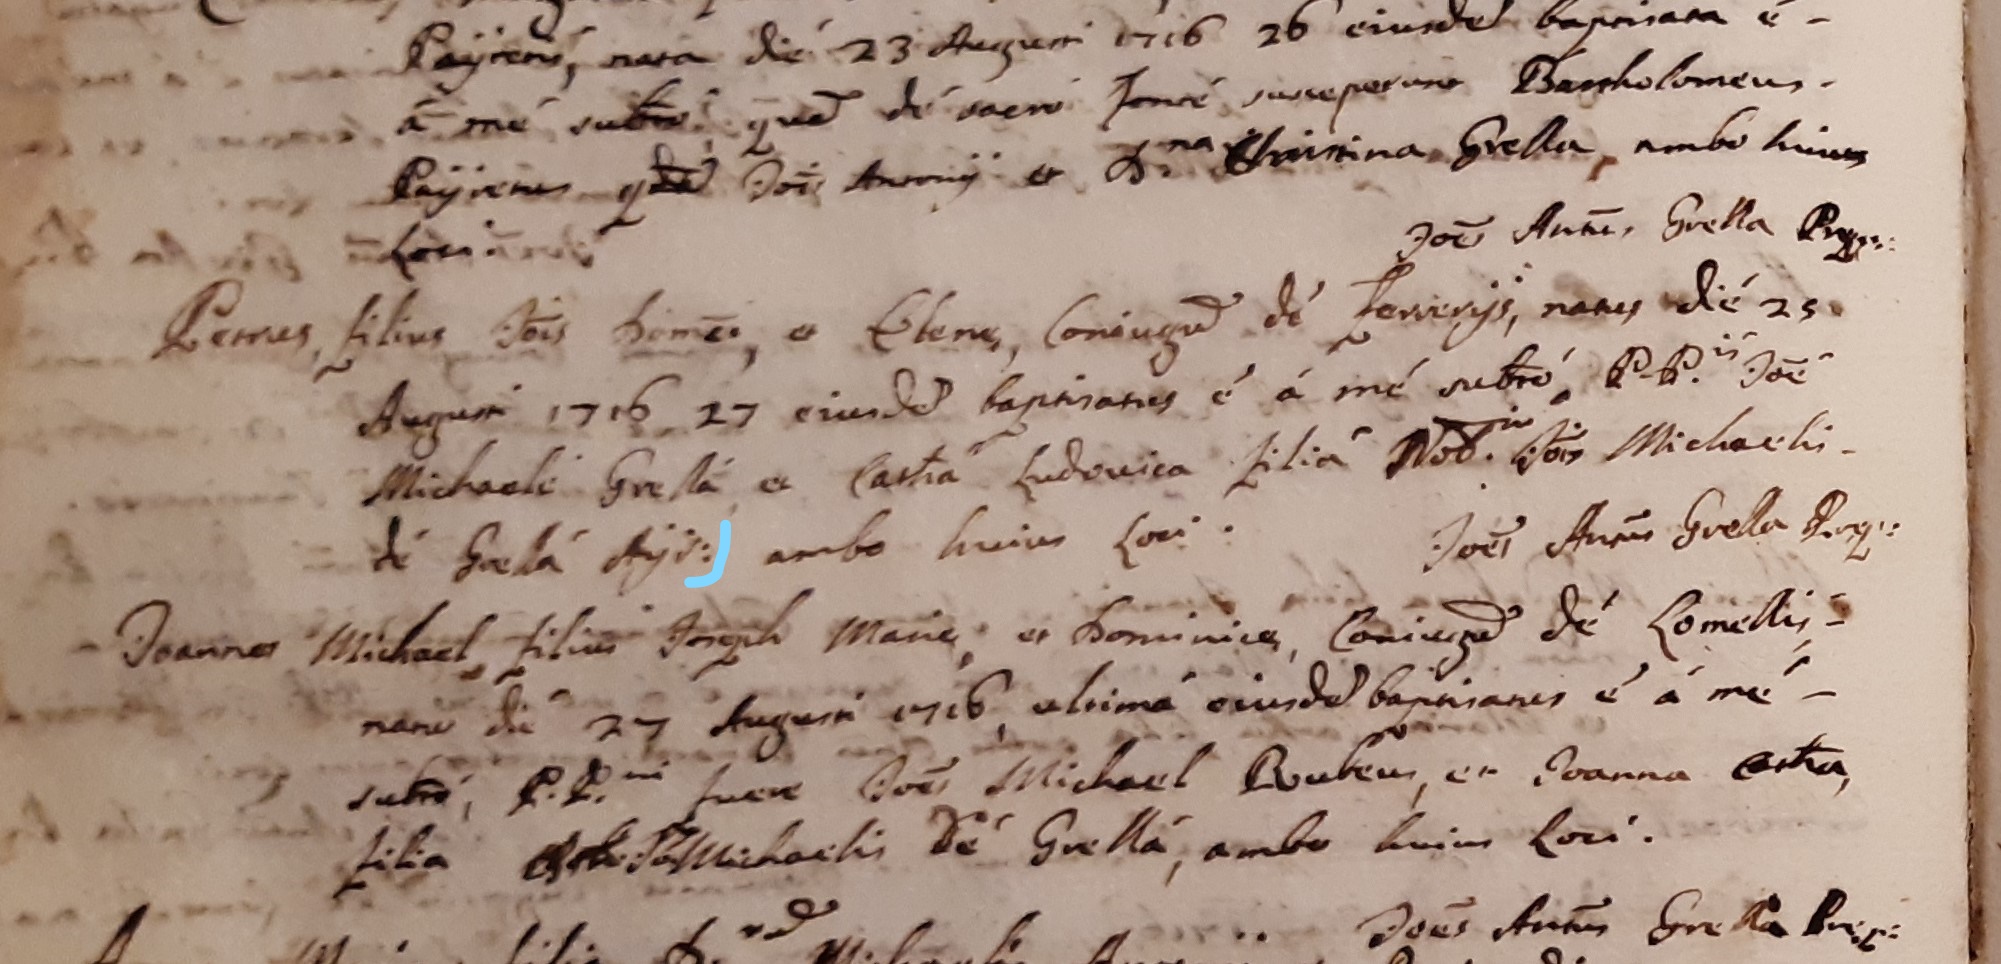 Payrenus, nata dié 23 Augusti 1716 26 eiusdé baptisata é -
á mé subtõ, qué dé sacro fonté susceperunt Bartholomeus -
Payrenus qdé Jõis Antonij et D.na Christina Grella, ambo huius
Loci
Joẽs Antũs Grella Prep.:
Petrus, filius Jõis Domẽi, et Elene, Coniugũ dé Ferrerijs, natus dié 25
Augusti 1716 27 eiusdé baptisatus é á mé subtõ, P.P.is Joẽ
Michaelé Grellá et Casthã Ludovica filiá Nob. Jõis Michaelis -
dé Grellá ambo huius Loci :
Joẽs Antũs Grella Prep.:
Joannes Michael, filius Joseph Marie, et Dominice, Coniugũ dé Lomellis, -
nato dié 27 Augusti 1716, ultimá eiusdé baptisatus é á mé -
subtõ, P.P.ni fuere Joẽs Michael Rubeus, et Joanna Castha,
filia Michaelis Dé Grellá, ambo huius Loci.
Joẽs Antũs Grella Prep.:
filia Michaelis